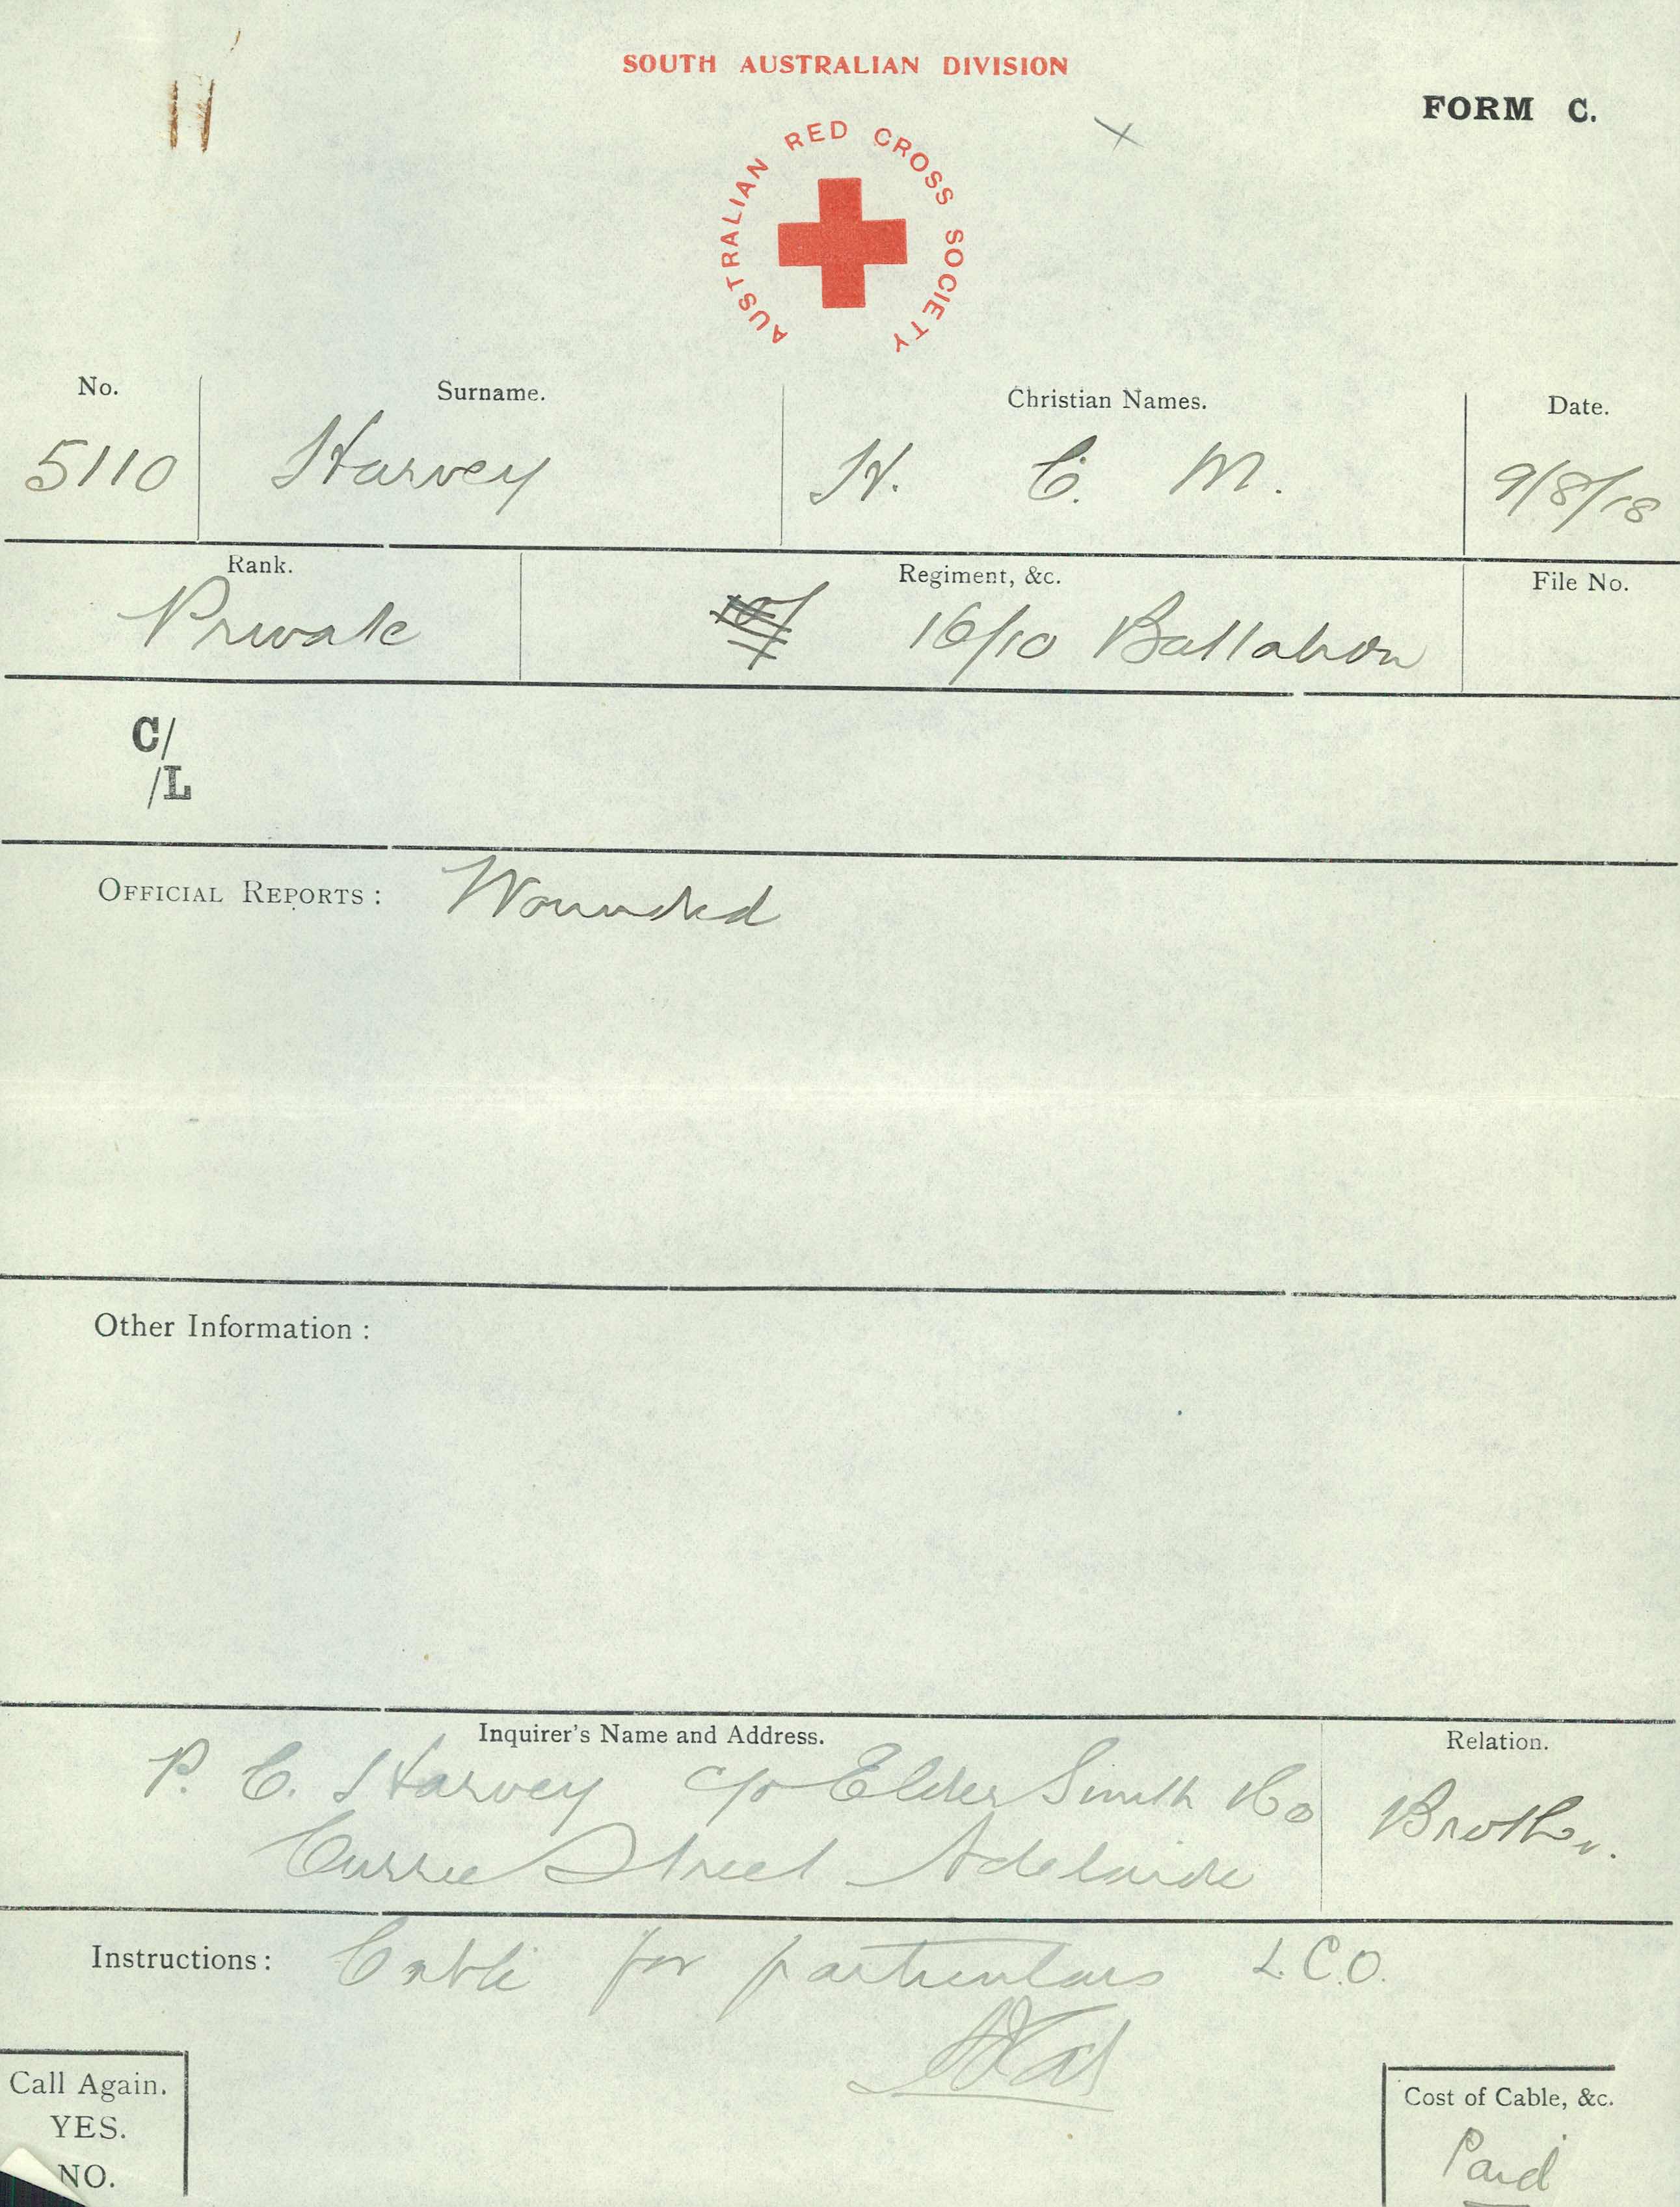 SOUTH AUSTRALIAN DIVISION
FORM C.
AUSTRALIAN RED CROSS SOCIETY
No. Surname. Christian Names. Date.
5110 Harvey H. C. M. 9/8/18
Rank. Regiment, &c. File No.
Private 16/10 Battalion
C/
/L
OFFICIAL REPORTS: Wounded
Other Information:
Inquirer's Name and Address. Relation.
P. C. Harvey c/o Elder Smith & Co Brother.
Currie Street Adelaide
Instructions: Cable for particulars L.C.O.
Call Again.
YES.
NO.
Cost of Cable, &c.
Paid